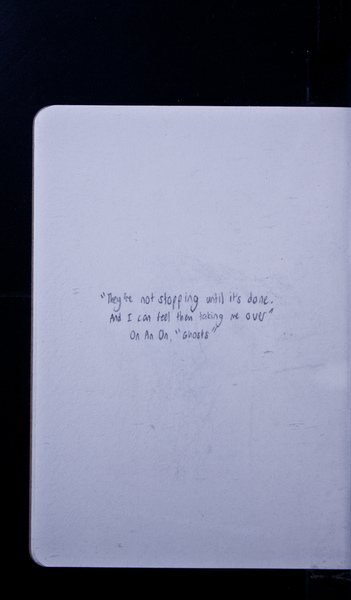 "They're not stopping until it's done.
And I can feel them taking me over"
On An On, "Ghosts"